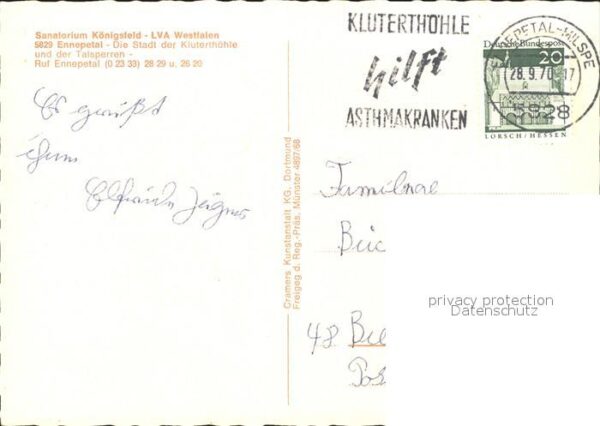 Sanatorium Königsfeld - LVA Westfalen
5829 Ennepetal - Die Stadt der Kluterthöhle
und der Talsperren -
Ruf Ennepetal (0 23 33) 28 29 u. 26 20
KLUTERTHÖHLE
hilft
ASTHMAKRANKEN
NEPETAL-MILSPE
28.9.70 17
5828
Deutsche Bundespost
20
LORSCH/HESSEN
Es grüßt
Cramers Kunstanstalt KG. Dortmund
Freigeg d. Reg.-Präs. Münster 4897/68
Familie
48
privacy protection
Datenschutz